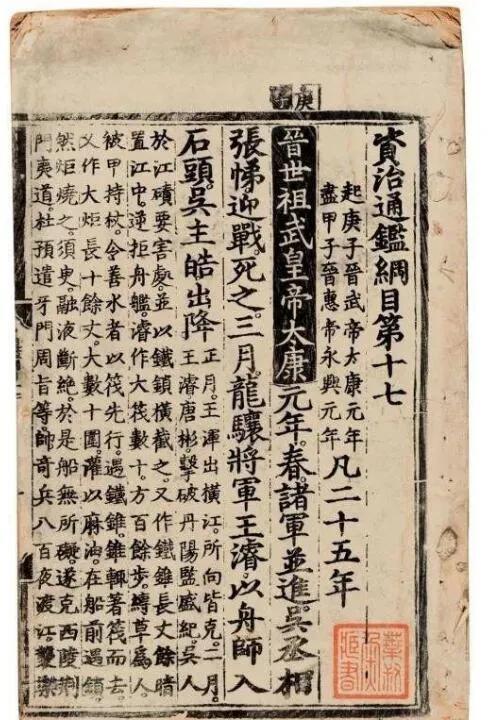 庚子
資治通鑑綱目第十七
起庚子晉武帝太康元年
盡甲子晉惠帝永興元年
凡二十五年
晉世祖武皇帝太康元年。春。諸軍並進。吳丞相
張悌迎戰。死之。三月。龍驤將軍王濬。以舟師入
石頭。吳主皓出降
正月。王渾出橫江。所向皆克。二月。
王濬唐彬擊破丹陽監盛紀。吳人
於江磧要害處。並以鐵鎖橫截之。又作鐵錐長丈餘。暗
置江中。逆拒舟艦。濬作大筏數十。方百餘步。縛草爲人。
被甲持杖。令善水者以筏先行。遇鐵錐。錐輒著筏而去。
又作大炬。長十餘丈。大數十圍。灌以麻油。在船前。遇鎖。
然炬燒之。須臾。融液斷絶。於是船無所礙。遂克西陵荊
門夷道。杜預遣牙門周旨等。帥奇兵八百。夜渡江。襲樂